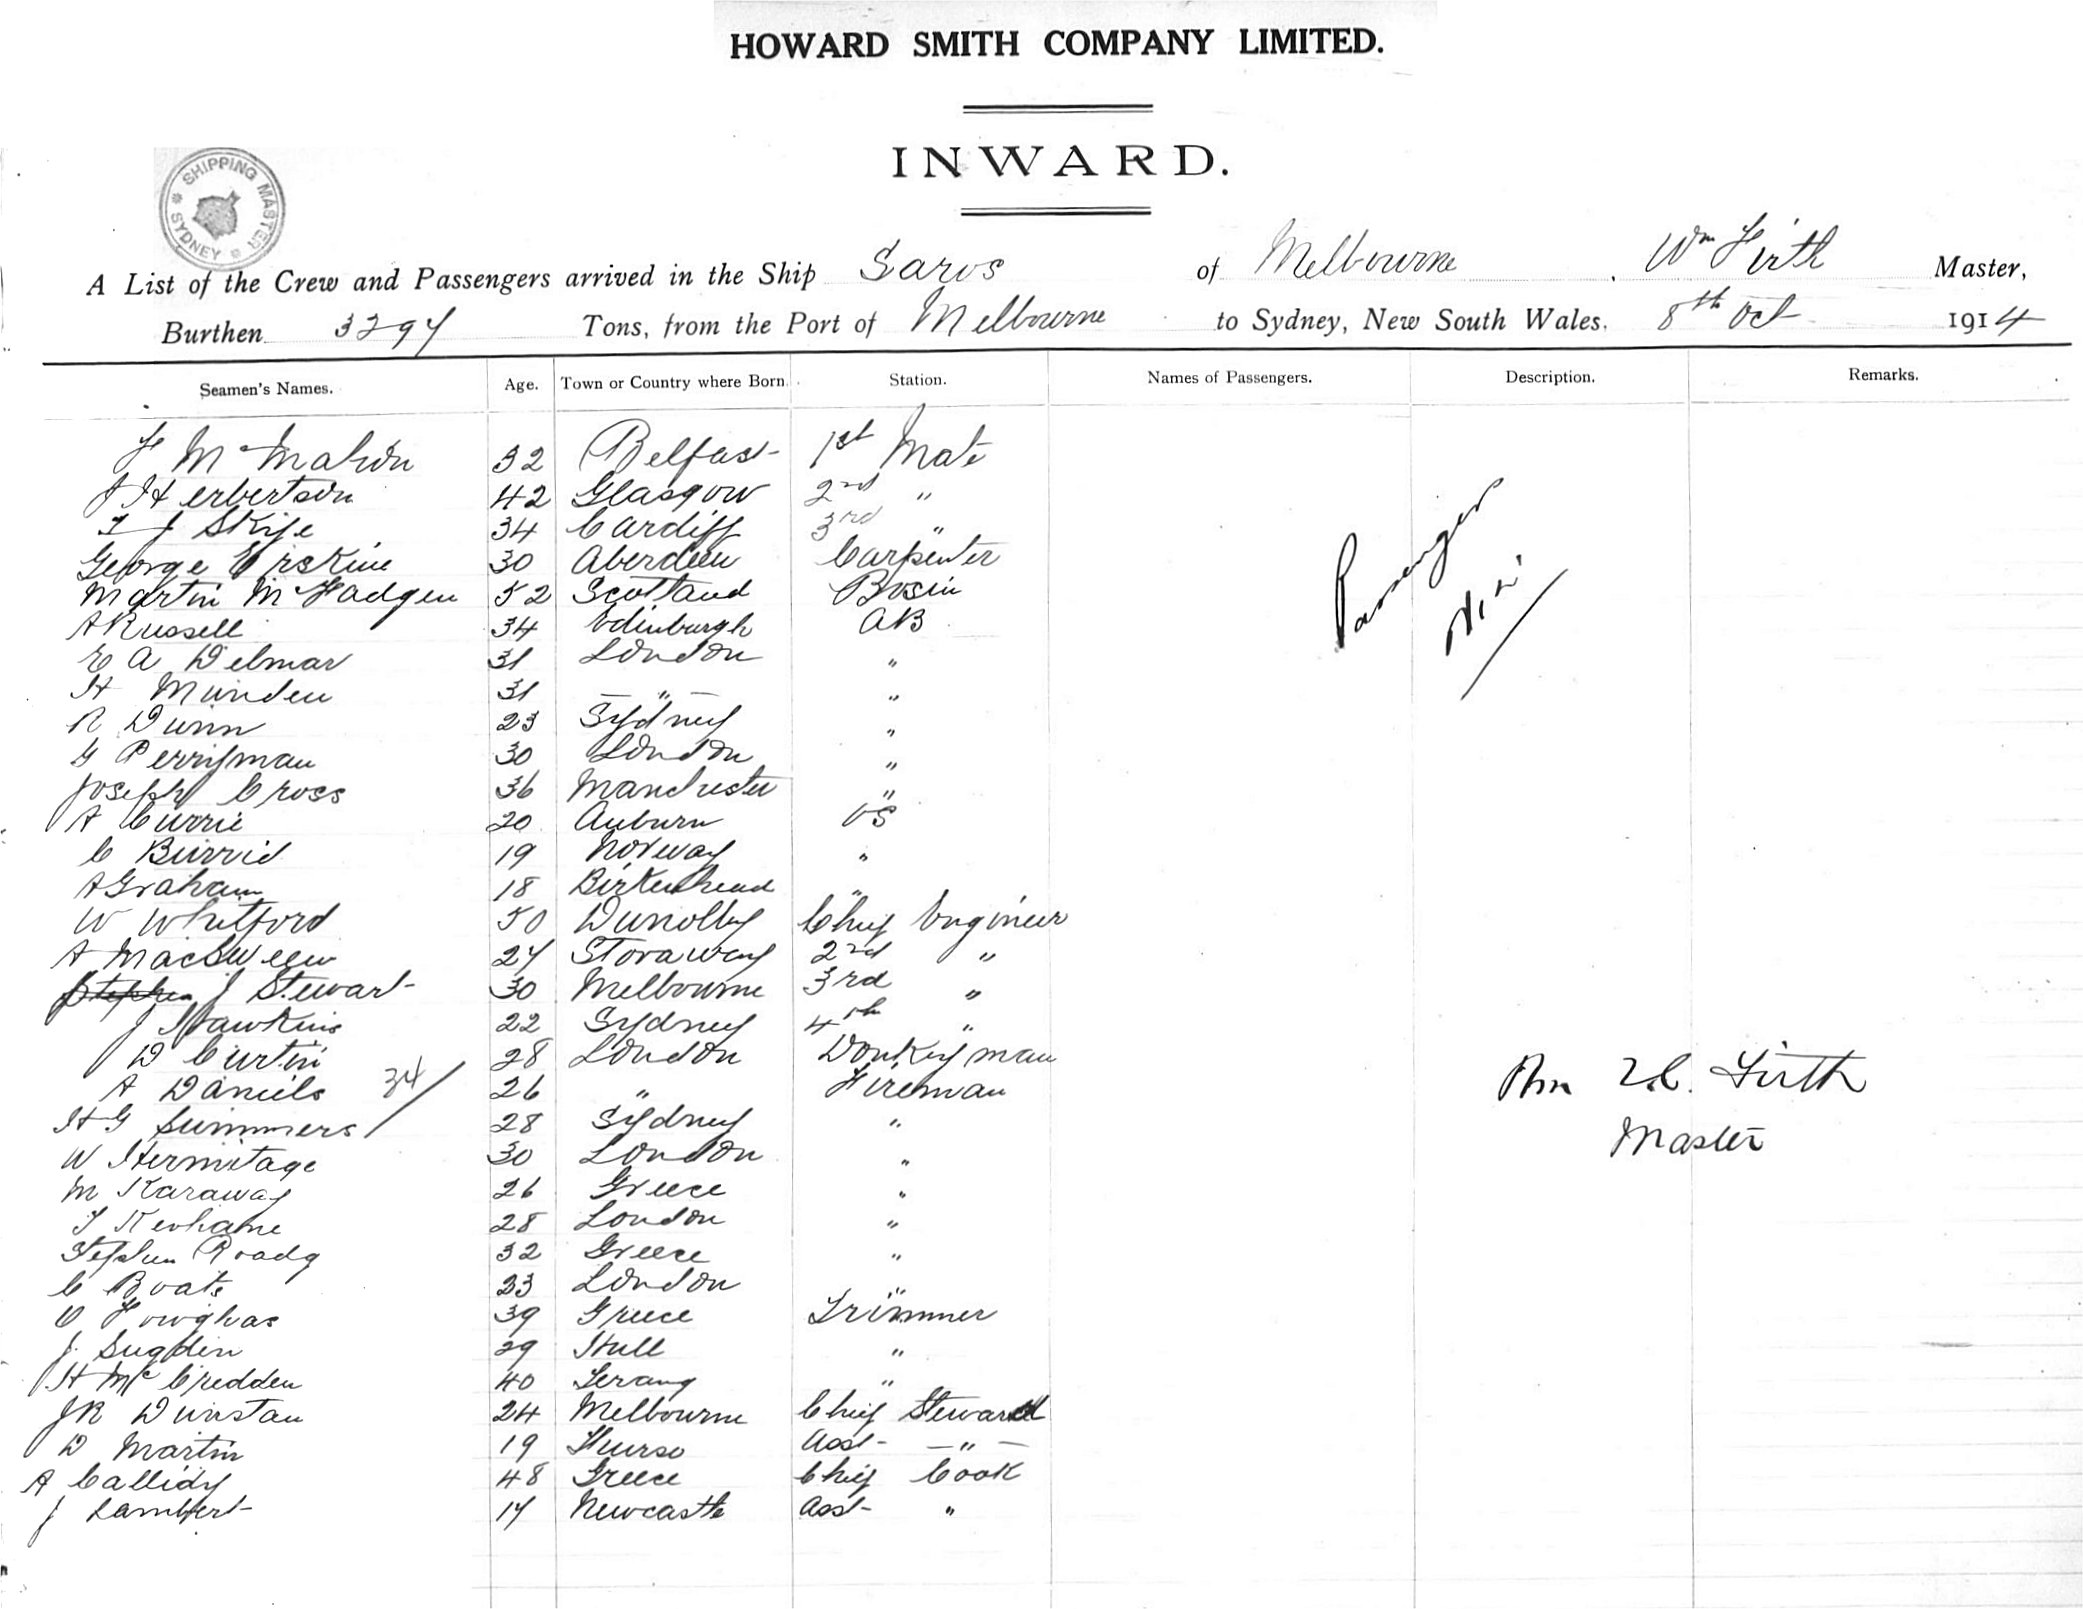 HOWARD SMITH COMPANY LIMITED.
INWARD.
SHIPPING MASTER SYDNEY
A List of the Crew and Passengers arrived in the Ship Saros of Melbourne, Wm Firth Master,
Burthen 3297 Tons, from the Port of Melbourne to Sydney, New South Wales, 8th Oct 1914
Seamen's Names. Age. Town or Country where Born. Station. Names of Passengers. Description. Remarks.
F McMahon 32 Belfast 1st Mate
J Herbertson 42 Glasgow 2nd "
J Skife 34 Cardiff 3rd "
George Erskine 30 Aberdeen Carpenter
Martin McFadgen 52 Scotland Bosin
A Russell 34 Edinburgh AB
E A Delmar 31 London "
H Munden 31 — " — "
R Dunn 23 Sydney "
G Perryman 30 London "
Joseph Cross 36 Manchester "
A Currie 20 Auburn OS
C Burrid 19 Norway "
A Graham 18 Birkenhead "
W Whitford 50 Dunolly Chief Engineer
A MacSween 27 Storaway 2nd "
Stephen J Stewart 30 Melbourne 3rd "
J Hawkins 22 Sydney 4th "
D Curtin 28 London Donkeyman
A Daniels 34/ 26 " Fireman
H G Summers 28 Sydney "
W Hermitage 30 London "
M Karaway 26 Greece "
T Kevhane 28 London "
Stephen Roady 32 Greece "
C Boats 23 London "
39 Greece Trimmer
J. Sugden 29 Hull "
H McCredden 40 Terang "
J R Dunstan 24 Melbourne Chief Steward
D Martin 19 Thurso Asst — " —
A Callidy 48 Greece Chief Cook
J Lambert 17 Newcastle Asst "
Passenger
Nil
Wm Firth
Master